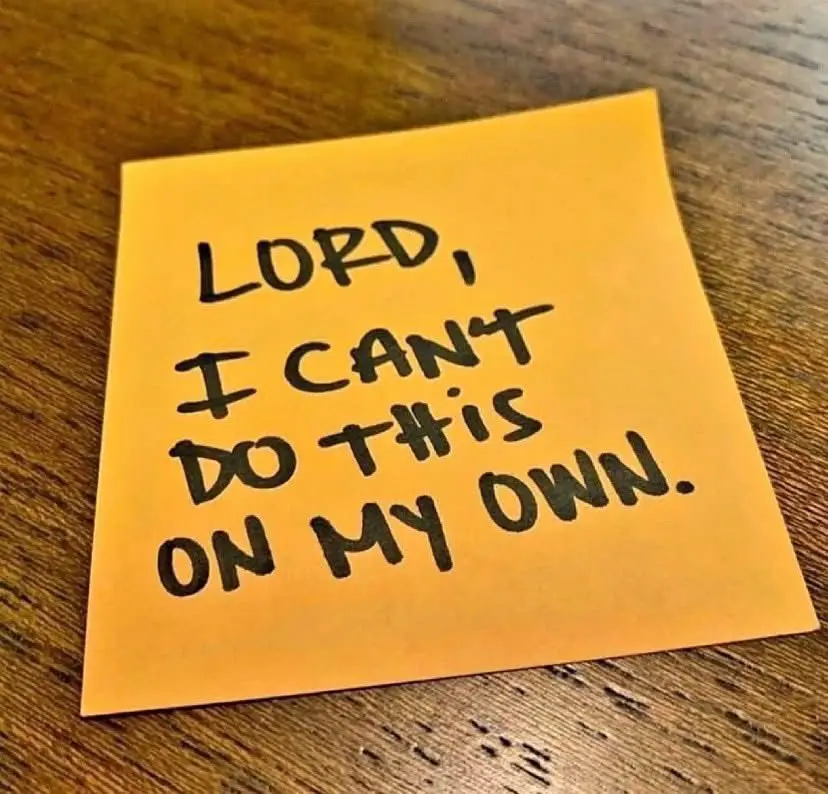 LORD,
I CAN'T
DO THIS
ON MY OWN.